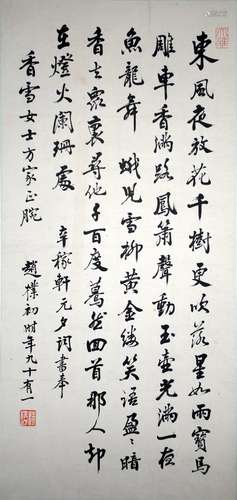 東風夜放花千樹更吹落星如雨寶馬
雕車香滿路鳳簫聲動玉壺光滿一夜
魚龍舞 蛾兒雪柳黃金縷笑語盈〻暗
香去衆裏尋他千百度驀然回首那人却
在燈火闌珊處 辛稼軒元夕詞書奉
香雪女士方家正腕
趙樸初時年九十有一